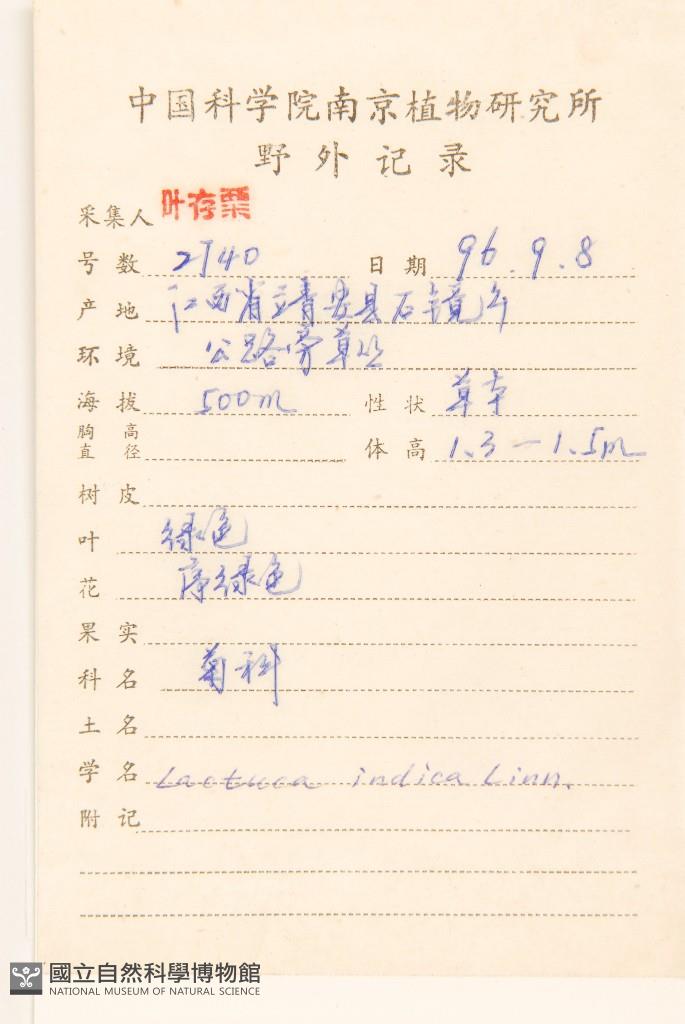 中国科学院南京植物研究所
野外记录
采集人 叶存粟
号数 2740 日期 96.9.8
产地 江西省靖安县石镜乡
环境 公路旁草丛
海拔 500m 性状 草本
胸高直径 体高 1.3—1.5m
树皮
叶 绿色
花 序绿色
果实
科名 菊科
土名
学名 Lactuca indica Linn.
附记
國立自然科學博物館
NATIONAL MUSEUM OF NATURAL SCIENCE